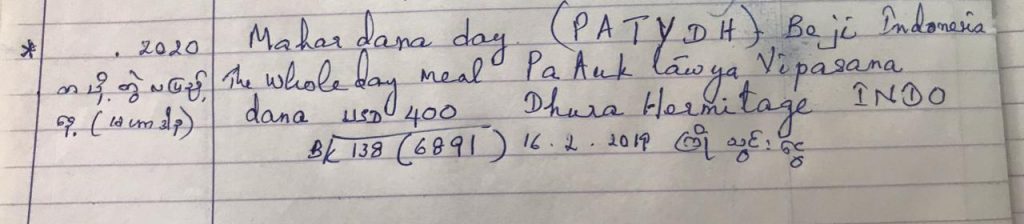 * . 2020 Mahar dana day (PATVDH) Baji Indonesia
တပို့တွဲလပြည့် The whole day meal Pa Auk Tawya Vipasana
နေ့ dana USD 400 Dhura Hermitage INDO
BK 138 (6891) 16.2.2019 ကြိုသွင်းငွေ